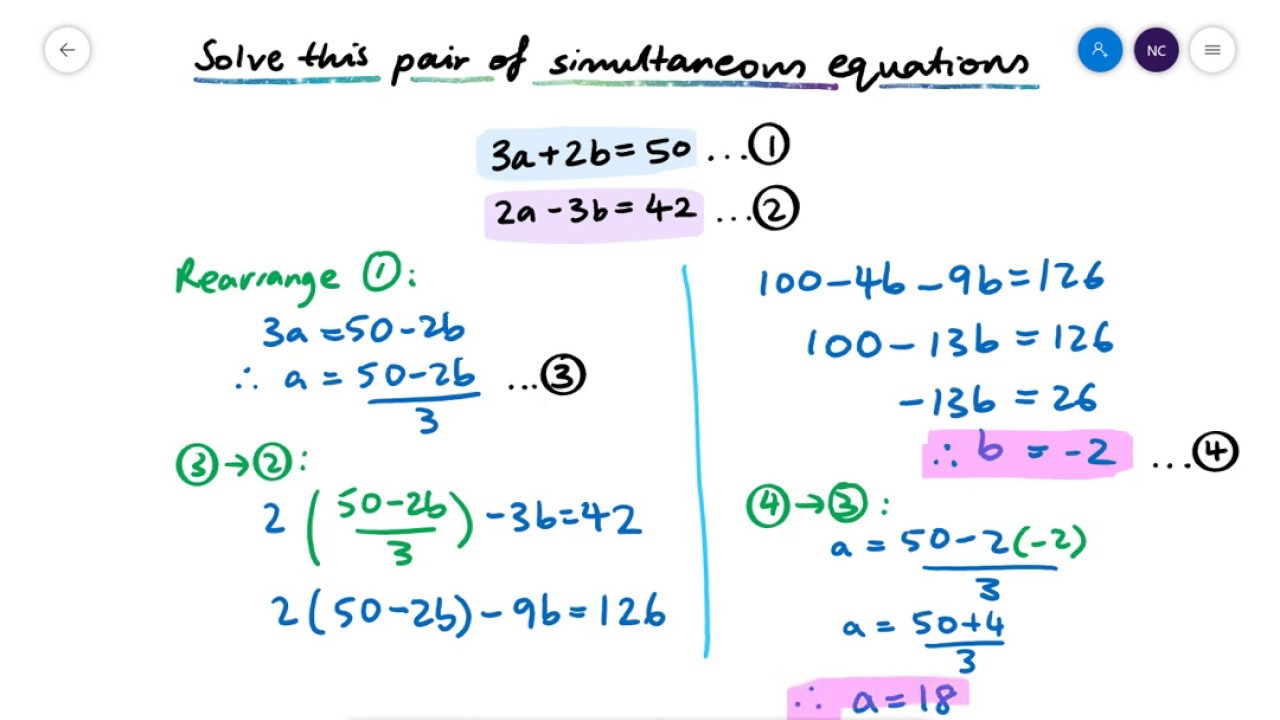 Solve this pair of simultaneous equations
NC
3a+2b=50 ...①
2a-3b=42 ...②
Rearrange ①:
3a=50-2b
∴ a = 50-2b ...③
3
③→②:
2 ( 50-2b ) -3b=42
3
2(50-2b)-9b=126
100-4b-9b=126
100-13b=126
-13b=26
∴ b = -2 ...④
④→③:
a = 50-2(-2)
3
a = 50+4
3
∴ a=18